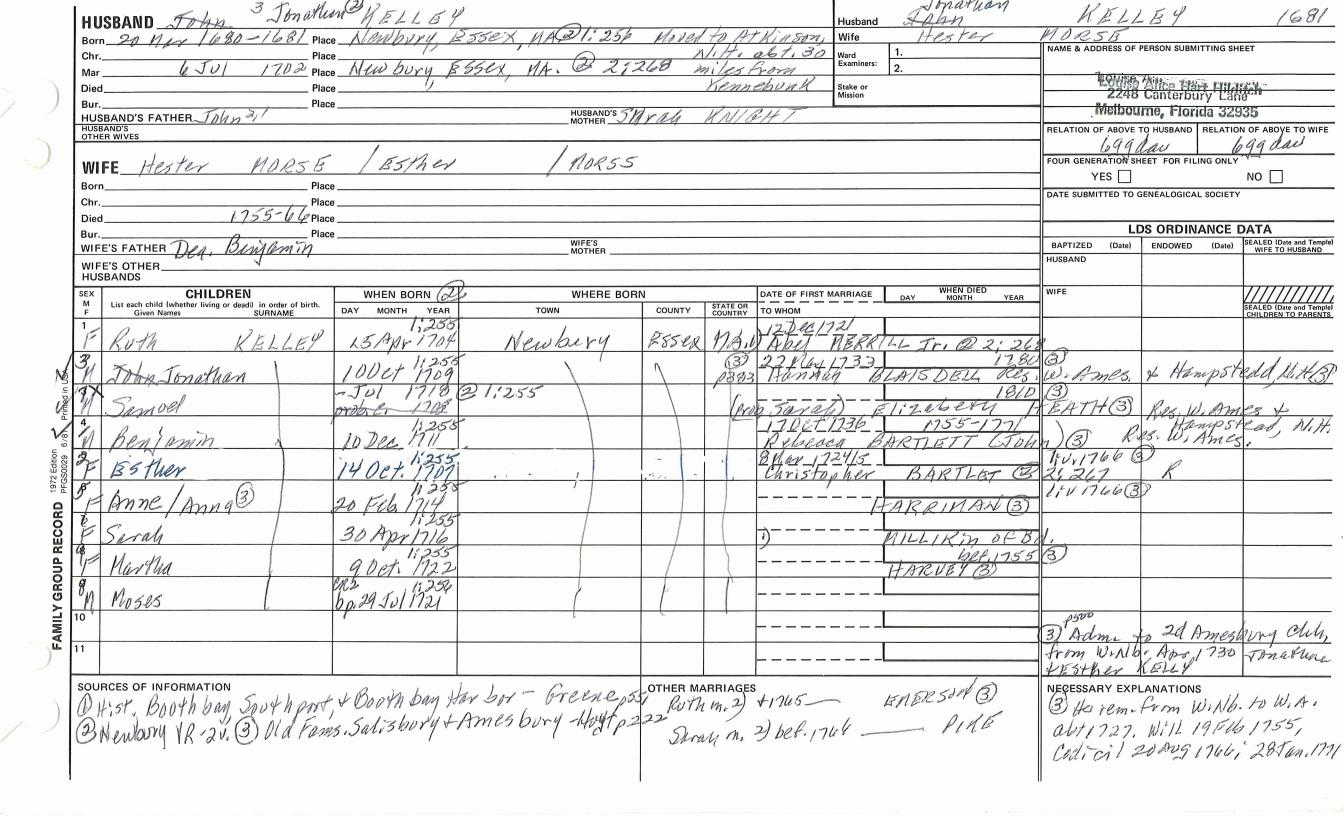 HUSBAND John 3 Jonathan (2) KELLEY
Born 20 Mar 1680-1681 Place Newbury, Essex, MA (2) 1:256 Moved to Atkinson,
Chr. Place N.H. abt. 30
Mar 6 Jul 1702 Place Newbury, Essex, MA. (2) 2:268 miles from
Died Place Kennebunk
Bur. Place
HUSBAND'S FATHER John 2,1 HUSBAND'S MOTHER Sarah KNIGHT
HUSBAND'S OTHER WIVES
Husband John Jonathan KELLEY 1681
Wife Hester MORSE
Ward Examiners: 1.
2.
Stake or Mission
NAME & ADDRESS OF PERSON SUBMITTING SHEET
Louise Alice Hart Hilditch
2248 Canterbury Lane
Melbourne, Florida 32935
RELATION OF ABOVE TO HUSBAND RELATION OF ABOVE TO WIFE
6ggdau 6ggdau
FOUR GENERATION SHEET FOR FILING ONLY
YES NO
DATE SUBMITTED TO GENEALOGICAL SOCIETY
WIFE Hester MORSE / Esther / MORSS
Born Place
Chr. Place
Died 1755-66 Place
Bur. Place
WIFE'S FATHER Dea. Benjamin WIFE'S MOTHER
WIFE'S OTHER HUSBANDS
LDS ORDINANCE DATA
BAPTIZED (Date) ENDOWED (Date) SEALED (Date and Temple) WIFE TO HUSBAND
HUSBAND
WIFE
SEALED (Date and Temple) CHILDREN TO PARENTS
SEX M F
CHILDREN
List each child (whether living or dead) in order of birth.
Given Names SURNAME
WHEN BORN (2)
DAY MONTH YEAR
WHERE BORN
TOWN COUNTY STATE OR COUNTRY
DATE OF FIRST MARRIAGE
TO WHOM
WHEN DIED
DAY MONTH YEAR
1 1:255 12 Dec 1721
F Ruth KELLEY 15 Apr 1704 Newbury Essex MA. Abel MERRILL Jr. (2) 2:268
3 1:255 (3) 22 May 1733 1780 (3)
M John Jonathan 10 Oct 1709 p383 Hannah BLAISDELL Res. W. Ames. & Hampstedd, N.H (3)
- Jul 1718 (2) 1:255 1810 (3)
M Samuel 1708 (prob. Sarah) Elizabeth HEATH (3) Res. W. Ames &
4 1:255 17 Oct 1736 1755-1771 Hampstead, N.H.
M Benjamin 10 Dec 1711 Rebecca BARTLETT (John) (3) Res. W. Ames.
2 1:255 8 Mar 1724/5 liv. 1766 (3)
F Esther 14 Oct. 1707 Christopher BARTLET (2) 2:267 R
5 1:255 liv 1766 (3)
F Anne / Anna (3) 20 Feb 1714 HARRIMAN (3)
1:255
F Sarah 30 Apr 1716 1) MILLIKIN of Bd.
8 1:255 bef. 1755 (3)
F Martha 9 Oct. 1722 HARVEY (3)
9 CR2 1:256
M Moses bp. 29 Jul 1721
10
11
p500
(3) Adm. to 2d Amesbury Chh,
from W. Nb. Apr, 1730 Jonathan
& Esther KELLY
SOURCES OF INFORMATION
(1) Hist. Boothbay, Southport, & Boothbay Harbor - Greene, p551
(2) Newbury VR - 2v. (3) Old Fams. Salisbury & Amesbury - Hoyt p222
OTHER MARRIAGES
Ruth m. 2) +1765 EMERSON (3)
Sarah m. 2) bef. 1766 PIKE
NECESSARY EXPLANATIONS
(3) He rem. from W. Nb. to W. A.
abt 1727. Will 19 Feb 1755,
Codicil 20 Aug 1766; 28 Jan. 1771
FAMILY GROUP RECORD
1972 Edition 6/81 Printed in USA
PFGS0029